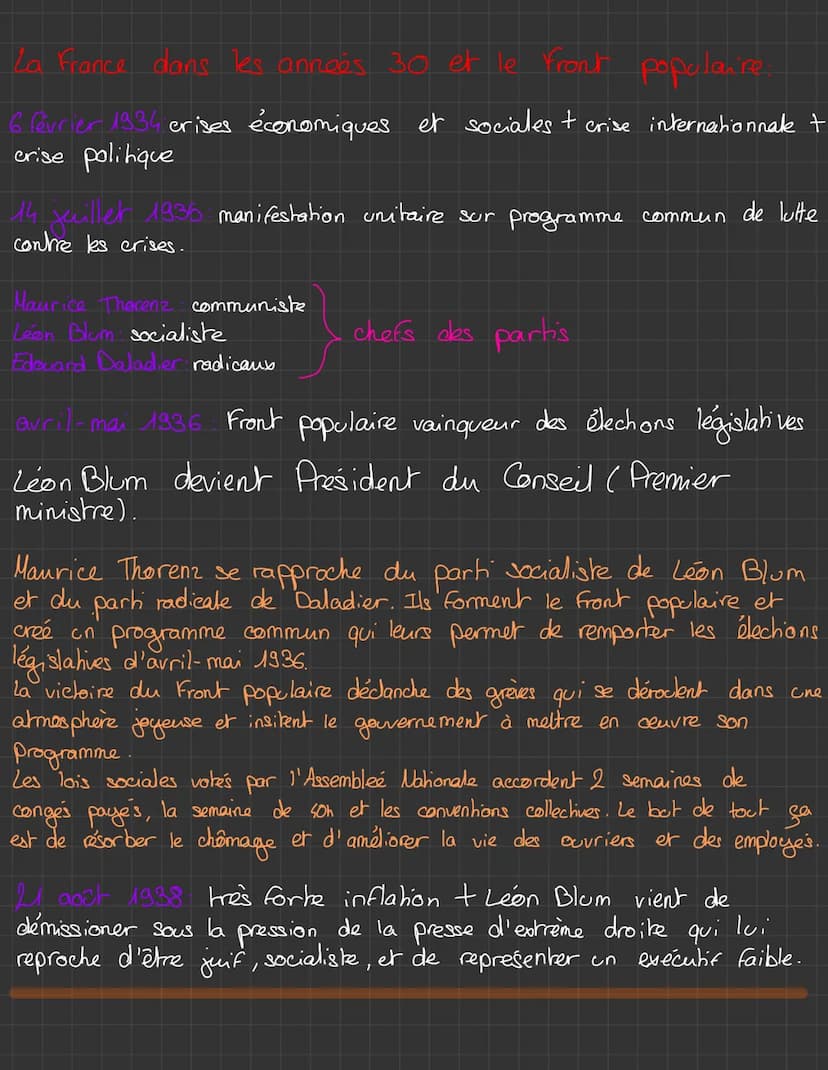 La France dans les années 30 et le Front populaire:
6 février 1934: crises économiques et sociales + crise internationnale +
crise politique
14 juillet 1936: manifestation unitaire sur programme commun de lutte
contre les crises.
Maurice Thorenz: communiste
Léon Blum: socialiste
chefs des partis
Edouard Daladier: radicaux
avril-mai 1936: Front populaire vainqueur des élections législatives
Léon Blum devient Président du Conseil (Premier
ministre).
Maurice Thorenz se rapproche du parti socialiste de Léon Blum
et du parti radicale de Daladier. Ils forment le Front populaire et
creé un programme commun qui leurs permet de remporter les élections
législatives d'avril-mai 1936.
La victoire du Front populaire déclanche des grèves qui se déroulent dans une
atmosphère joyeuse et insitent le gouvernement à mettre en œuvre son
programme.
Les lois sociales votés par l'Assembleé Nationale accordent 2 semaines de
congés payés, la semaine de 40h et les conventions collectives. Le but de tout ça
est de résorber le chômage et d'améliorer la vie des ouvriers et des employés.
21 août 1938: très forte inflation + Léon Blum vient de
démissioner sous la pression de la presse d'extrème droite qui lui
reproche d'être juif, socialiste, et de représenter un exécutif faible.